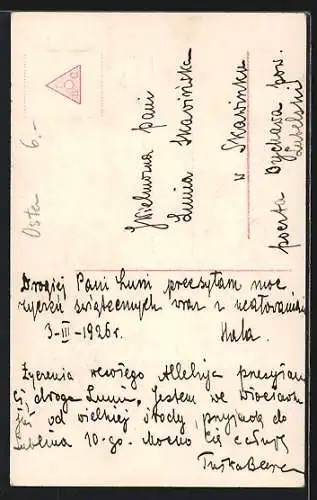 Osta 6.-
Wielmożna Pani
Lunia Skawińska
w Skawinku
poczta Bychawa pow.
Lubelski
Drogiej Pani Luni przesyłam moc
życzeń świątecznych wraz z ucałowaniami
3-III-1926 r. Hala.
Życzenia wesołego Alleluja przesyłam
Ci, droga Luniu. Jestem we
już od wielkiej środy, przyjadę do
Lublina 10-go. Mocno Cię całuję